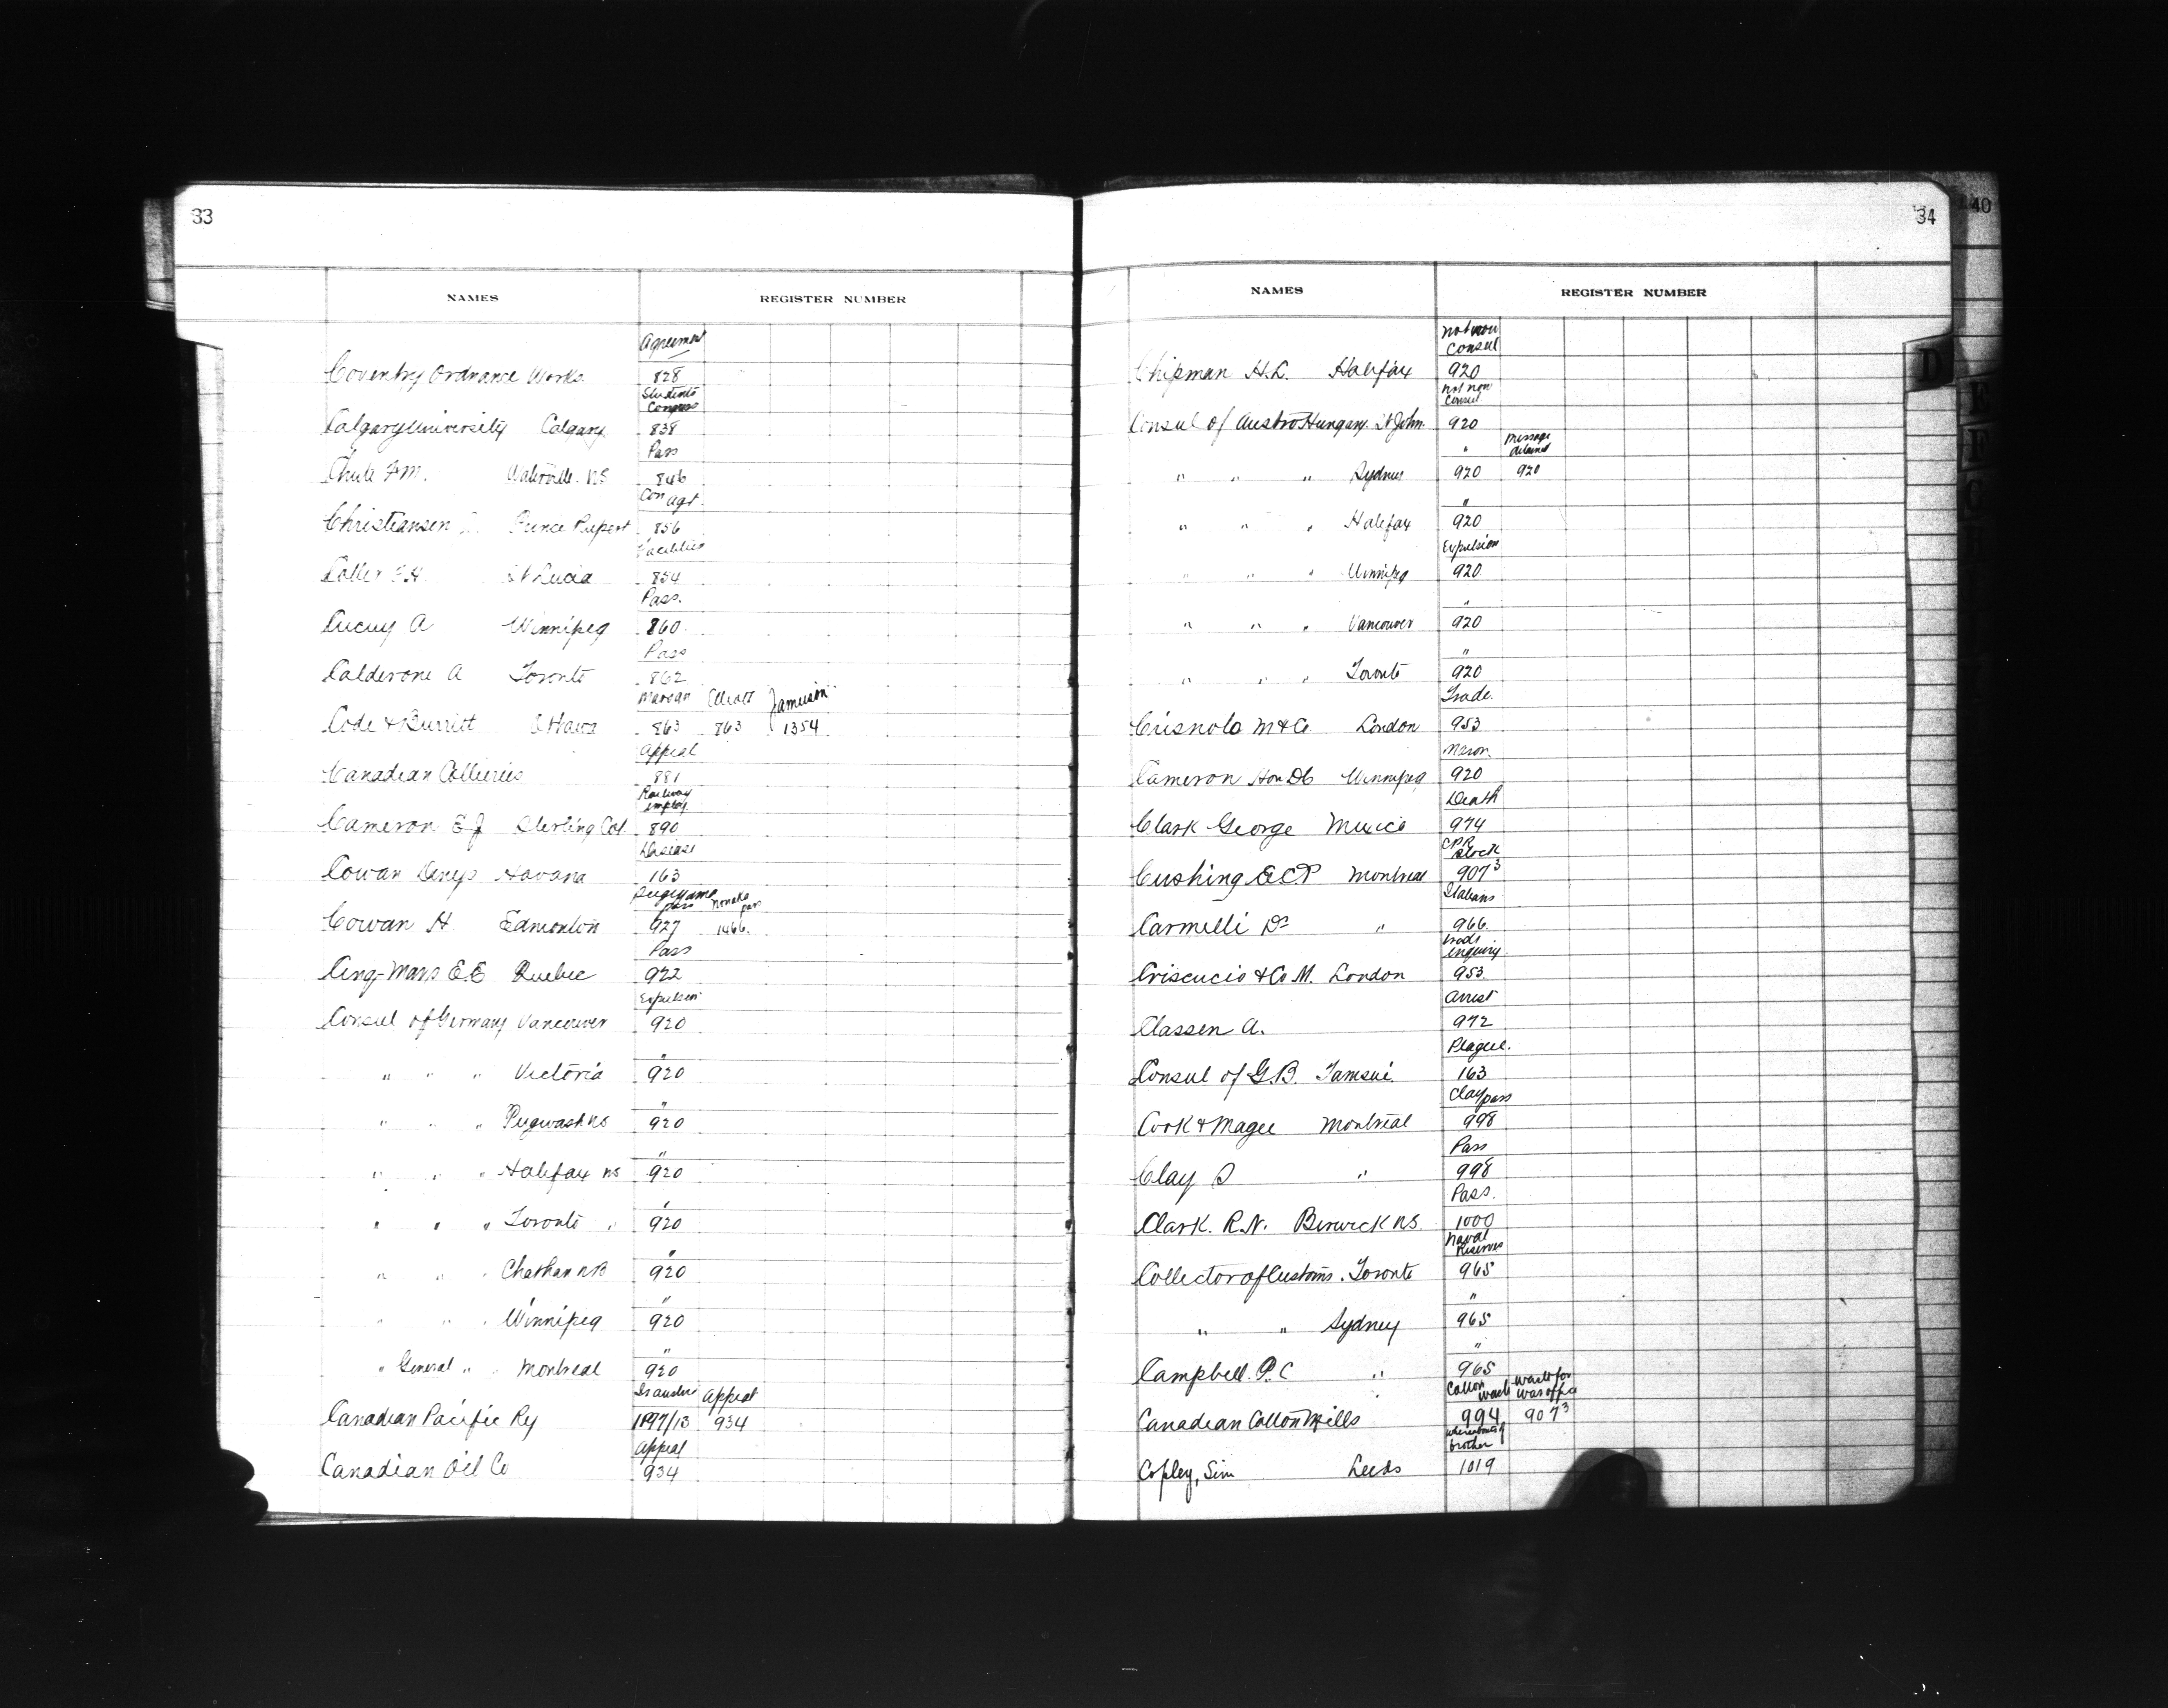 33
NAMES REGISTER NUMBER
Agreement
Coventry Ordnance Works 828
Students Congress
Calgary University Calgary 838
Pass
Chute F.M. Waterville. NS 846
Con Agt.
Christiansen Prince Rupert 856
Facilities
St Lucia 854
Pass.
Cucuy A Winnipeg 860
Pass
Calderone A Toronto 862
Marean Elliott Jameison
Code & Burritt Ottawa 863 863 1354
Appeal
Canadian Collieries 881
Railway employ
Cameron E J Sterling Col 890
Disease
Cowan Denys Havana 163
pass Nonaka pass
Cowan H Edmonton 927 1466.
Pass
Cinq-Mars E.E Quebec 922
Expulsion
Consul of Germany Vancouver 920
"
" " " Victoria 920
"
" " " Pugwash NS 920
"
" " " Halifax NS 920
"
" " " Toronto " 920
"
" " " Chatham NB 920
"
" " " Winnipeg 920
"
" General " " Montreal 920
Appeal
Canadian Pacific Ry 1897/13 934
Appeal
Canadian Oil Co 934
34
40
NAMES REGISTER NUMBER
not now Consul
Chipman H.L. Halifax 920
not now Consul
Consul of Austro Hungary. St John. 920
" message detained
" " " Sydney 920 920
"
" " " Halifax 920
Expulsion
" " " Winnipeg 920
"
" " " Vancouver 920
"
" " " Toronto 920
Trade.
Crisnolo M & Co London 953
Cameron Hon DC Winnipeg 920
Death
Clark George Mexico 974
CPR Stock
Cushing E.C.P Montreal 907³
Italians
Carmelli Dr " 966.
trade inquiry.
Criscucio & Co M. London 953.
Arrest
Classen A. 972
Plague.
Consul of G.B. Tamsui. 163
Clay pass
Cook & Magee Montreal 998
Pass
Clay S " 998
Pass.
Clark. R.N. Berwick NS. 1000
Naval Reserves
Collector of Customs. Toronto 965
"
" " Sydney 965
"
Campbell. P.C " 965
Cotton waste waste for war office
Canadian Cotton Mills 994 907³
whereabouts of brother
Copley, Sim Leeds 1019
D
E
F
G
H